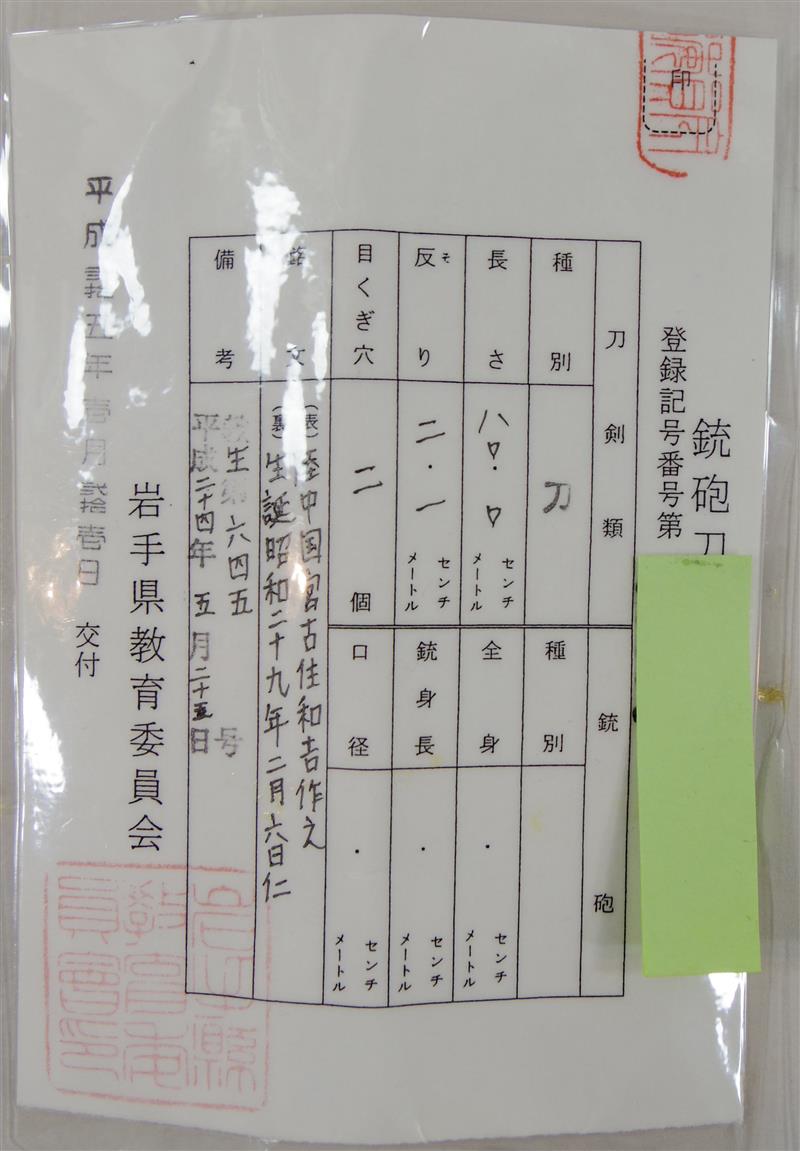 印
銃砲刀
登録記号番号第
刀剣類 銃砲
種別 刀 種別
長さ 八〇.〇 センチメートル 全身 . センチメートル
反り そ 二.一 センチメートル 銃身長 . センチメートル
目くぎ穴 二 個 口径 . センチメートル
銘文 (表)陸中国宮古住和吉作之
(裏)生誕昭和二十九年二月六日仁
備考 教生第六四五号
平成二十四年五月二十五日
岩手県教育委員会
平成弐拾五年壱月弐拾壱日 交付